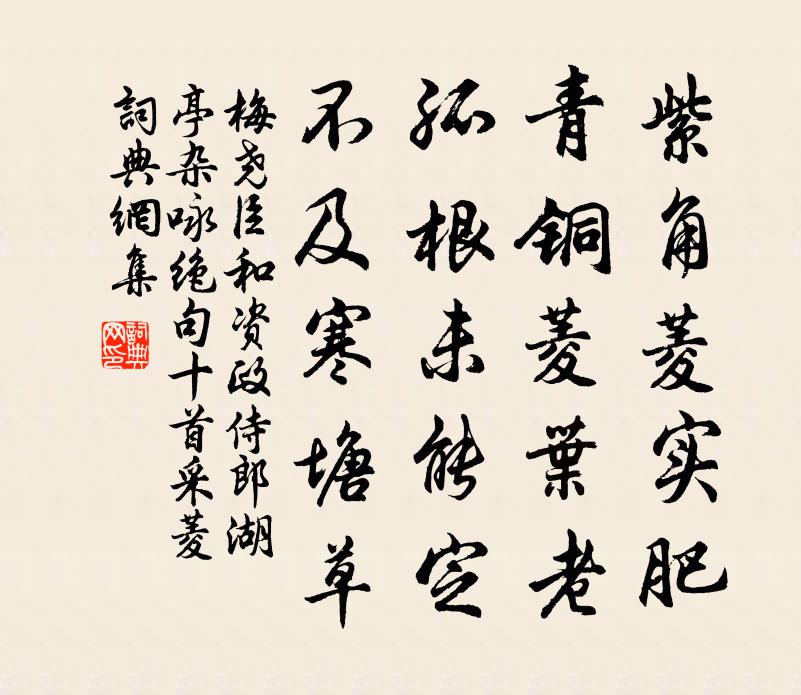 紫角菱实肥
青铜菱葉老
孤根未能定
不及寒塘草
梅尧臣和资政侍郎湖
亭杂咏绝句十首采菱
詞典網集
詞典
网印